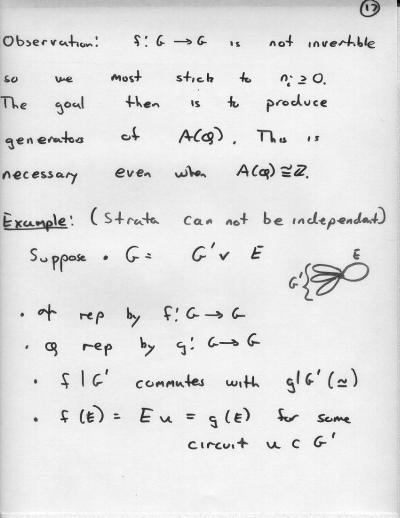 17
Observation: f: G → G is not invertible
so we must stick to nᵢ ≥ 0.
The goal then is to produce
generators of A(φ). This is
necessary even when A(φ) ≅ ℤ.
Example: (Strata can not be independent)
Suppose • G = G' ∨ E
E
G' {
• rep by f: G → G
• φ rep by g: G → G
• f | G' commutes with g | G' (≃)
• f (E) = E u = g (E) for some
circuit u ⊂ G'